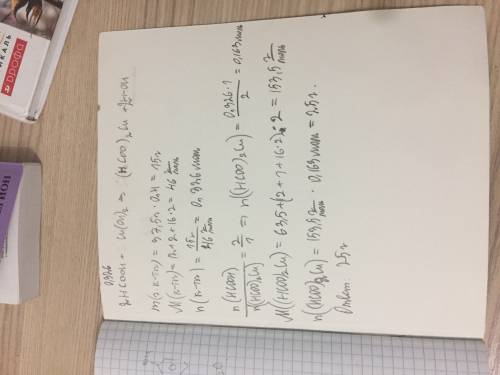 0,326
2HCOOH + Cu(OH)₂ → (HCOO)₂Cu + 2HOH
m(к-ты) = 37,5г · 0,4 = 15г
M(к-ты) = 12 + 2 + 16·2 = 46 г/моль
n(к-ты) = 15г / 46 г/моль = 0,326 моль
n(HCOOH) / n((HCOO)₂Cu) = 2/1 ⇒ n((HCOO)₂Cu) = 0,326·1 / 2 = 0,163 моль
M((HCOO)₂Cu) = 63,5 + (12 + 1 + 16·2)·2 = 153,5 г/моль
m((HCOO)₂Cu) = 153,5 г/моль · 0,163 моль = 25г.
Ответ: 25г